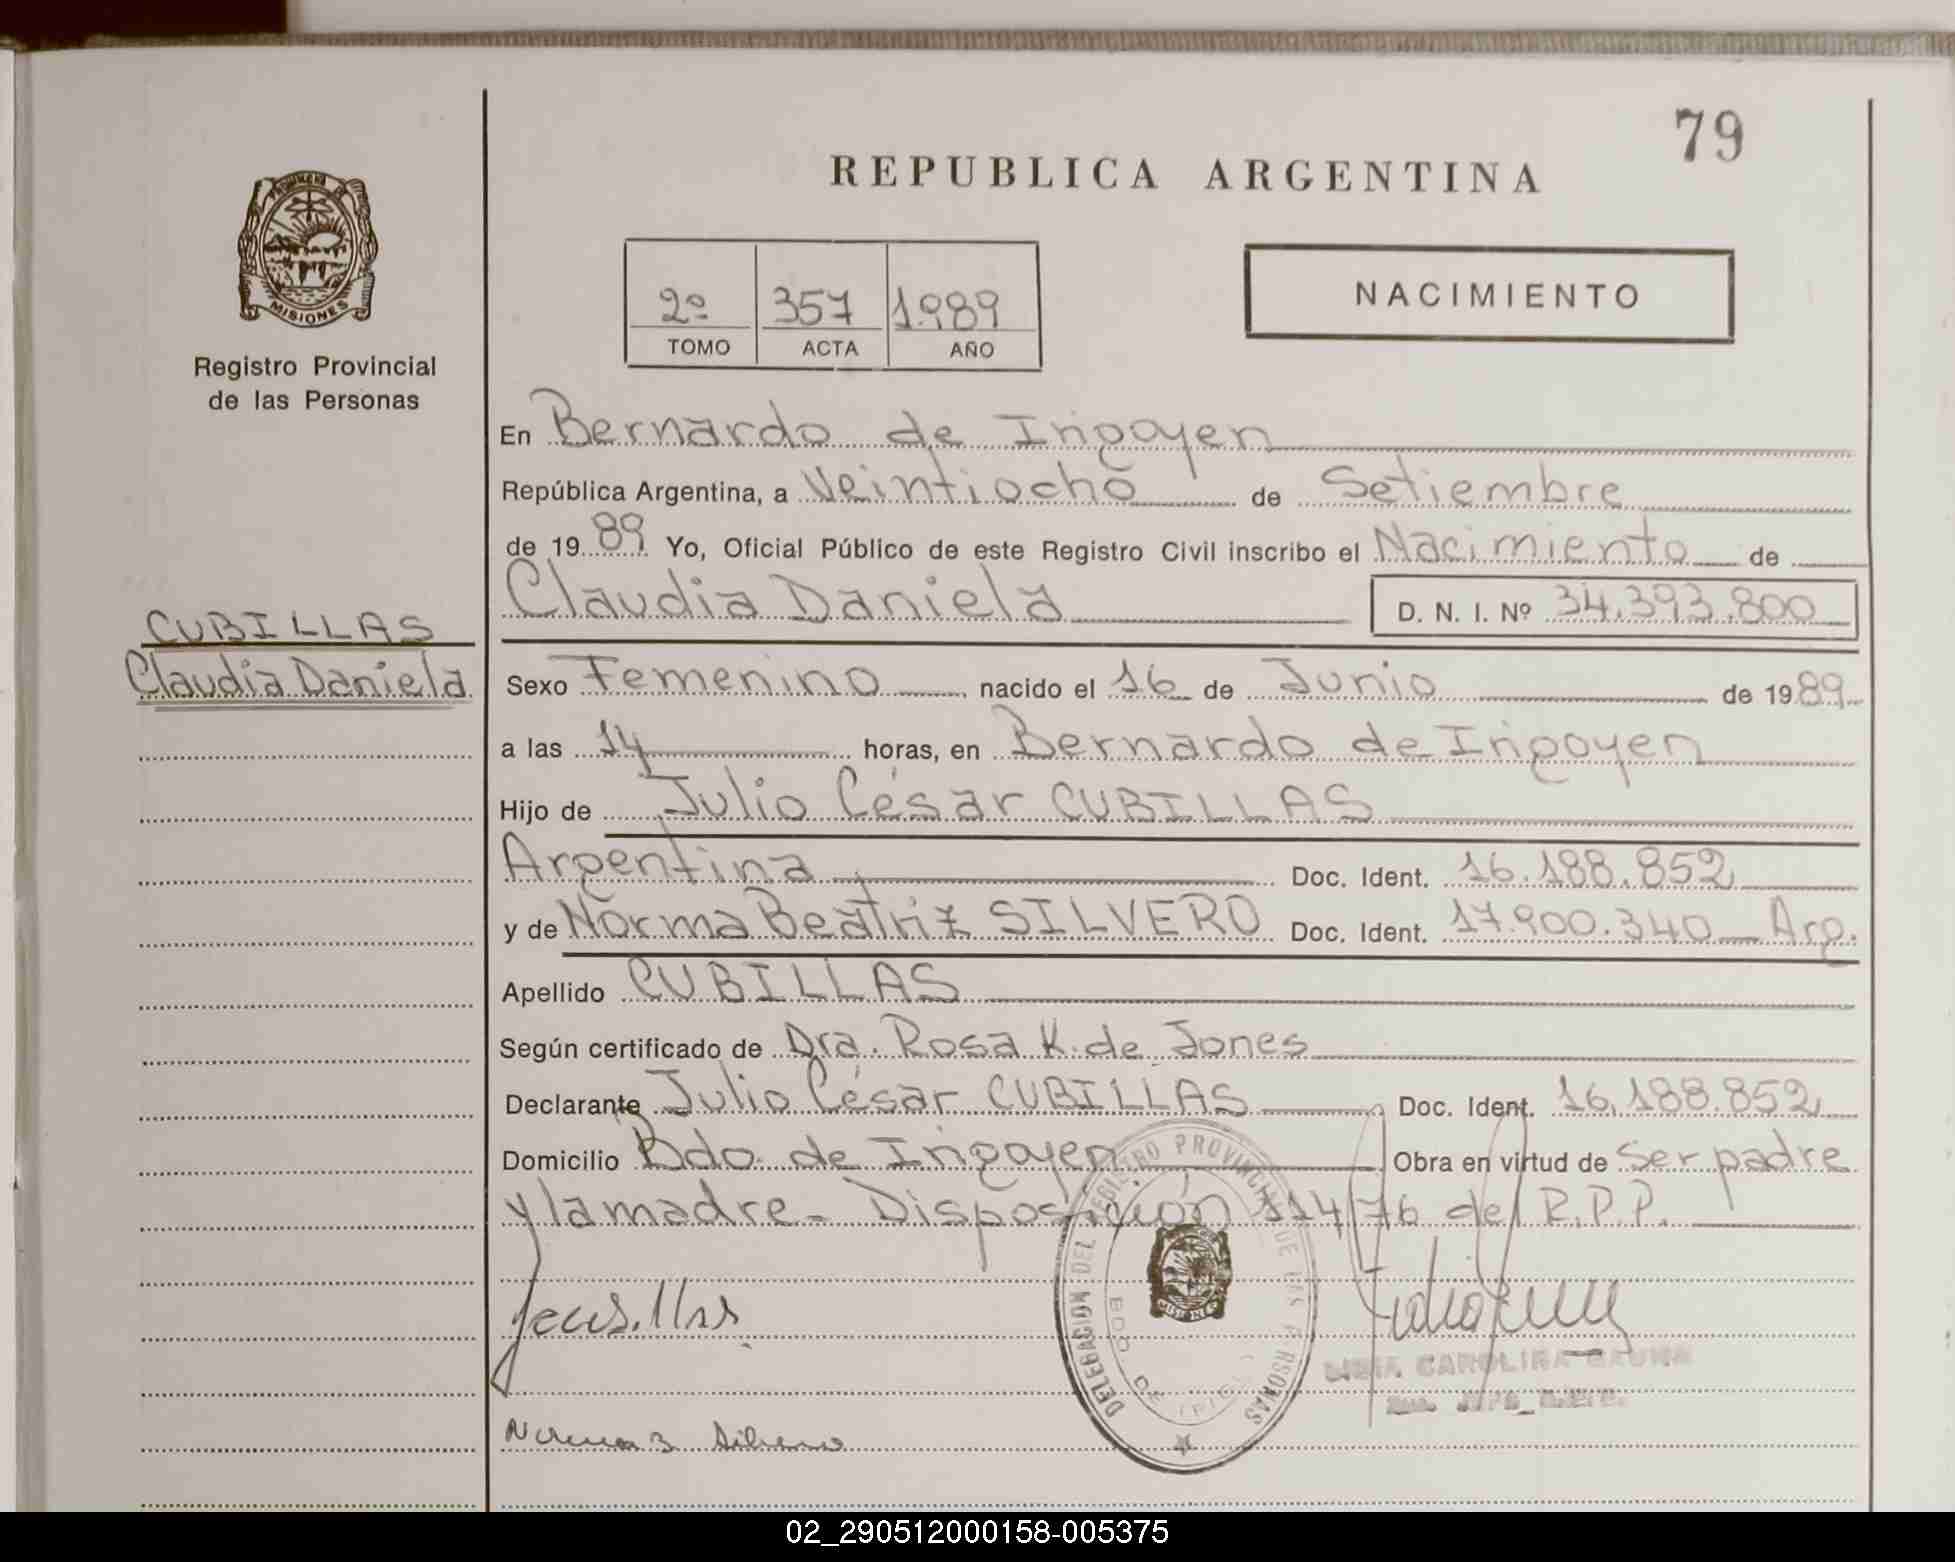 79
REPUBLICA ARGENTINA
PROVINCIA DE
MISIONES
Registro Provincial
de las Personas
2º 357 1.989
TOMO ACTA AÑO
NACIMIENTO
En Bernardo de Irigoyen
República Argentina, a Veintiocho de Setiembre
de 1989 Yo, Oficial Público de este Registro Civil inscribo el Nacimiento de
Claudia Daniela D. N. I. Nº 34.393.800
CUBILLAS
Claudia Daniela
Sexo Femenino nacido el 16 de Junio de 1989
a las 14 horas, en Bernardo de Irigoyen
Hijo de Julio César CUBILLAS
Argentina Doc. Ident. 16.188.852
y de Norma Beatriz SILVERO Doc. Ident. 17.900.340 Arg.
Apellido CUBILLAS
Según certificado de Dra. Rosa K. de Jones
Declarante Julio César CUBILLAS Doc. Ident. 16.188.852
Domicilio Bdo. de Irigoyen Obra en virtud de Ser padre
y la madre - Disposición 114/76 del R.P.P.
DELEGACION DEL REGISTRO PROVINCIAL DE LAS PERSONAS
BDO. DE IRIGOYEN
MISIONES
CAROLINA GAUNA
Norma B Silvero
02_290512000158-005375